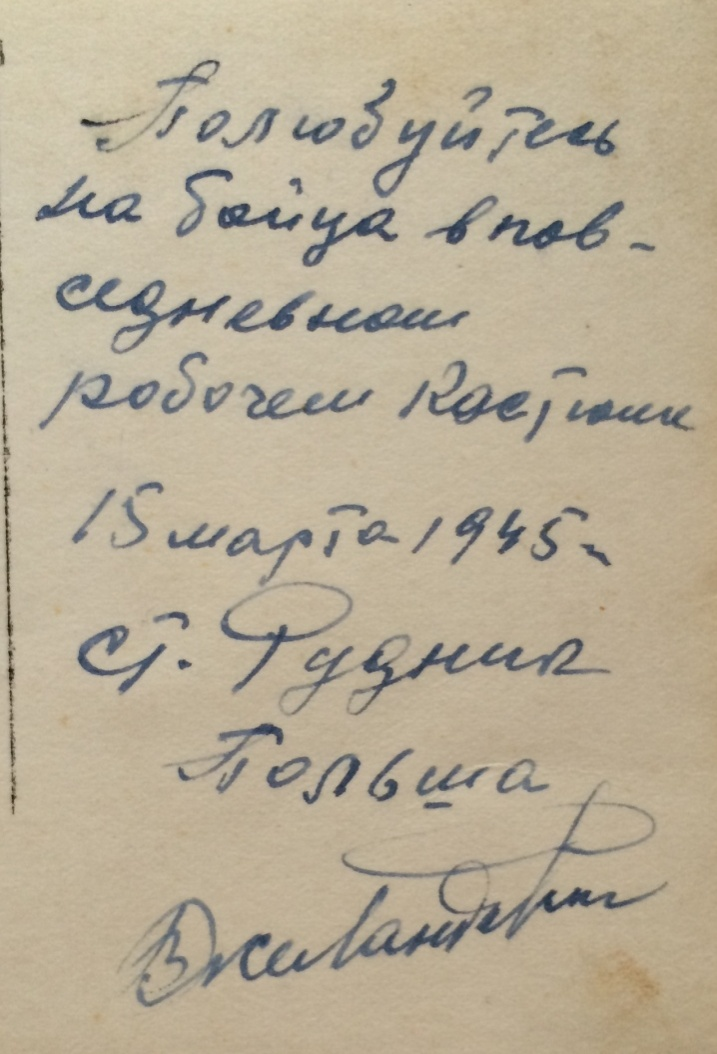 Полюбуйтесь
на бойца в пов-
седневном
робочем костюме
15 марта 1945 г.
ст. Рудник
Польша